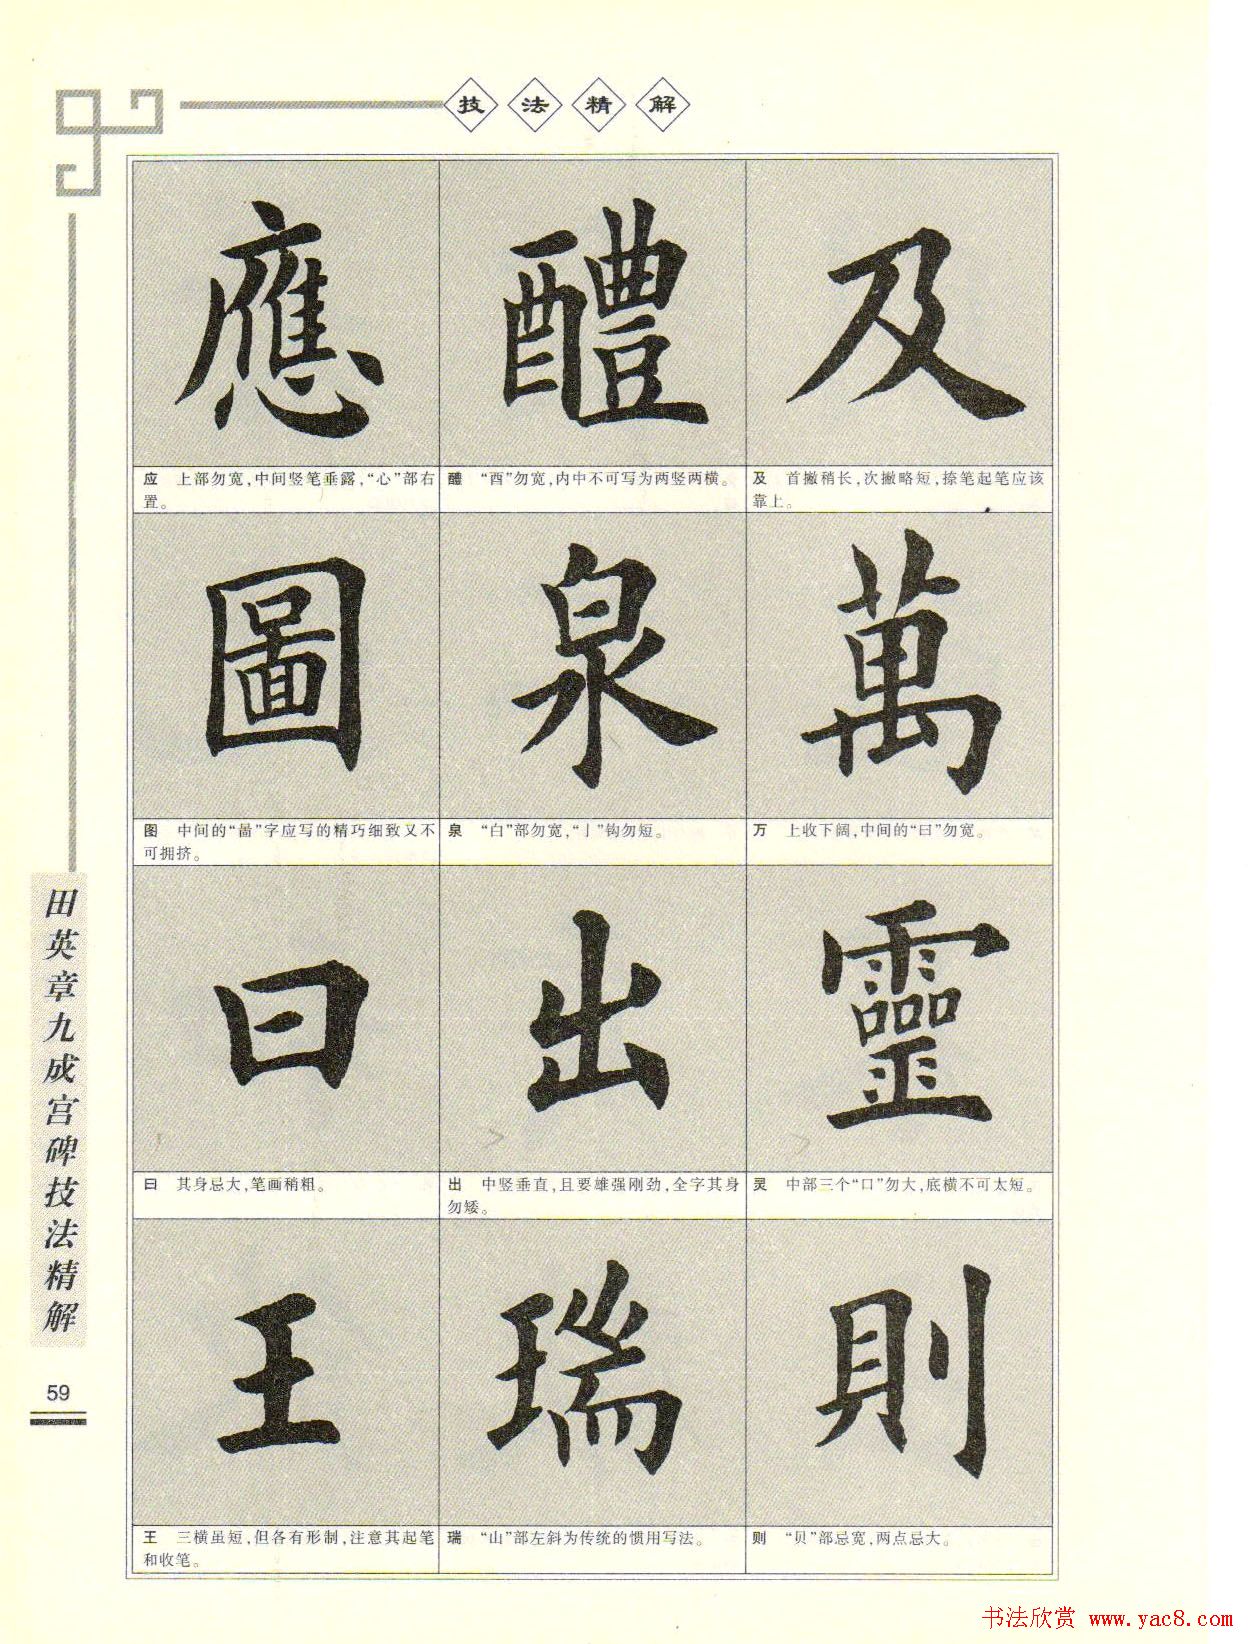 技法精解
應
醴
及
应 上部勿宽,中间竖笔垂露,“心”部右
置。
醴 “酉”勿宽,内中不可写为两竖两横。
及 首撇稍长,次撇略短,捺笔起笔应该
靠上。
圖
泉
萬
图 中间的“啚”字应写的精巧细致又不
可拥挤。
泉 “白”部勿宽,“亅”钩勿短。
万 上收下阔,中间的“曰”勿宽。
曰
出
靈
曰 其身忌大,笔画稍粗。
出 中竖垂直,且要雄强刚劲,全字其身
勿矮。
灵 中部三个“口”勿大,底横不可太短。
王
瑞
則
王 三横虽短,但各有形制,注意其起笔
和收笔。
瑞 “山”部左斜为传统的惯用写法。
则 “贝”部忌宽,两点忌大。
田英章九成宫碑技法精解
59
书法欣赏 www.yac8.com